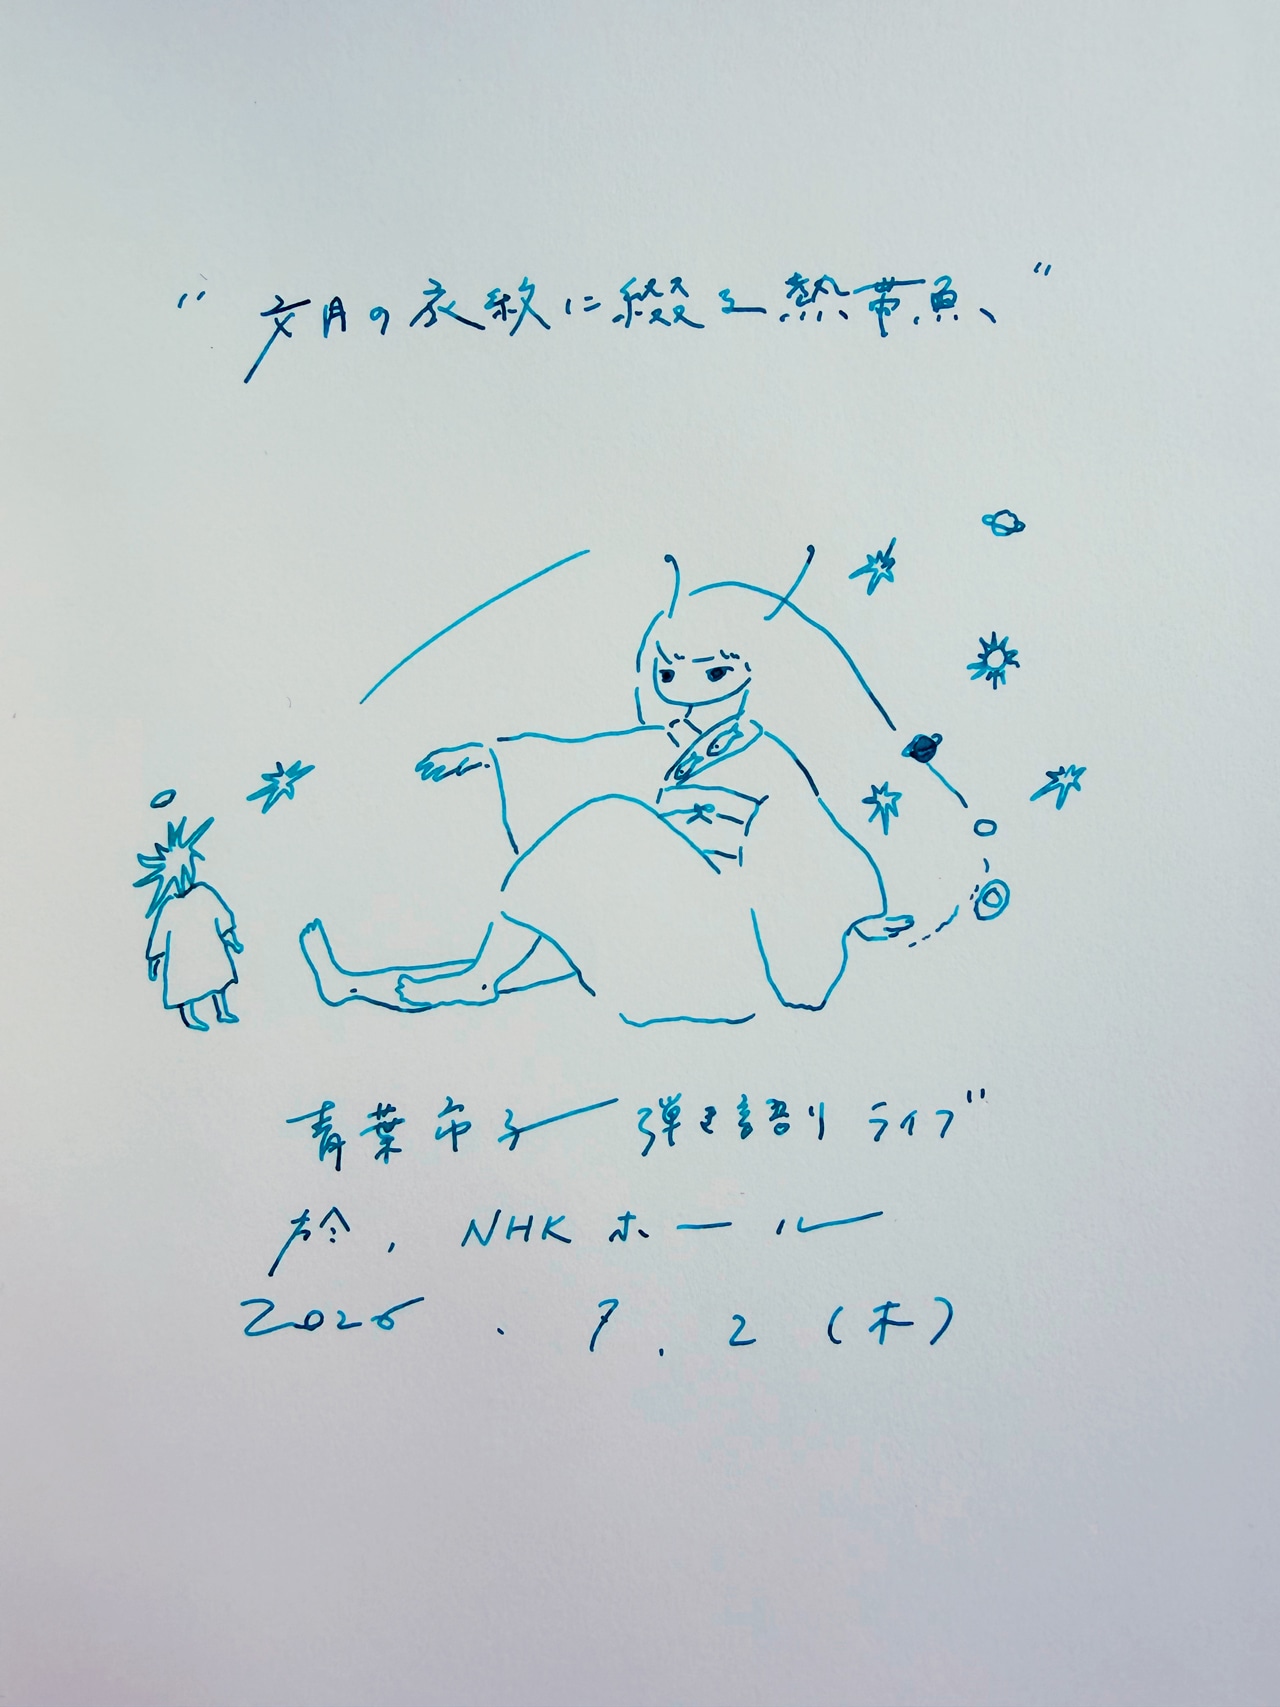 "文月の衣紋に綴る熱帯魚、"
青葉市子 弾き語りライブ"
於、NHKホール
2026.7.2(木)